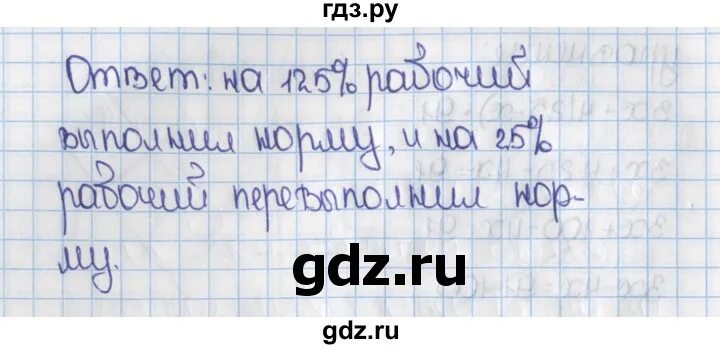 гдз.ру
Ответ: на 125% рабочий
выполнил норму, и на 25%
рабочий перевыполнил нор-
му.
gdz.ru
gdz.ru